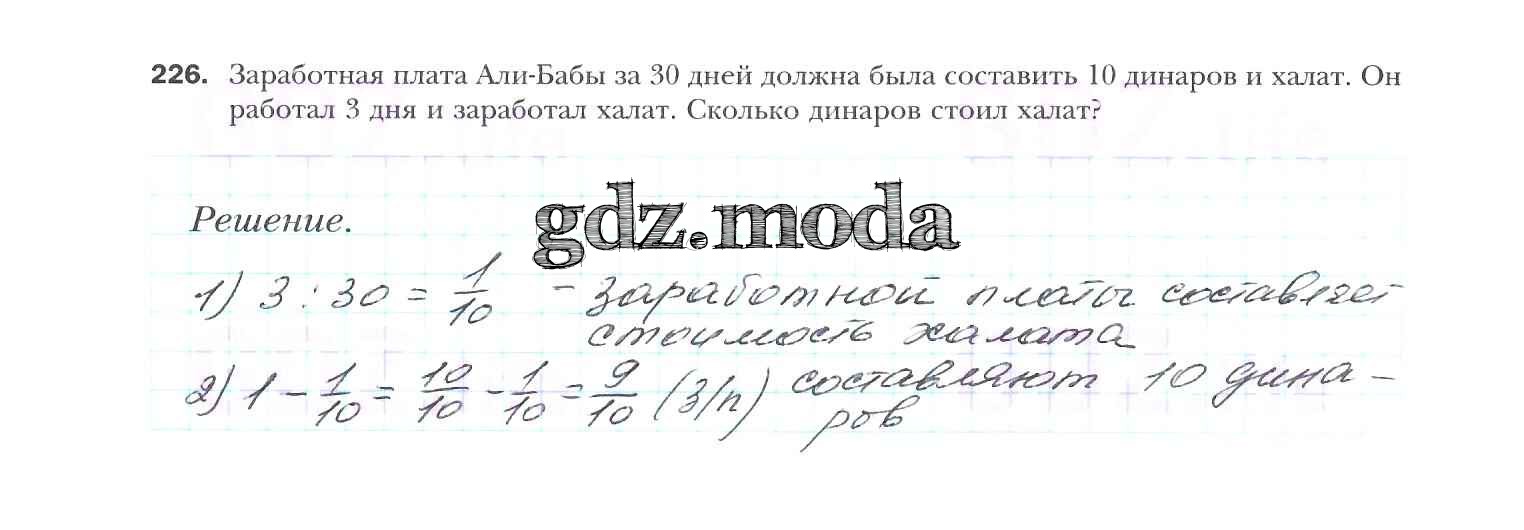 226. Заработная плата Али-Бабы за 30 дней должна была составить 10 динаров и халат. Он
работал 3 дня и заработал халат. Сколько динаров стоил халат?
gdz.moda
Решение.
1) 3 : 30 = 1/10 - заработной платы составляет
стоимость халата
2) 1 - 1/10 = 10/10 - 1/10 = 9/10 (З/п) составляют 10 дина-
ров